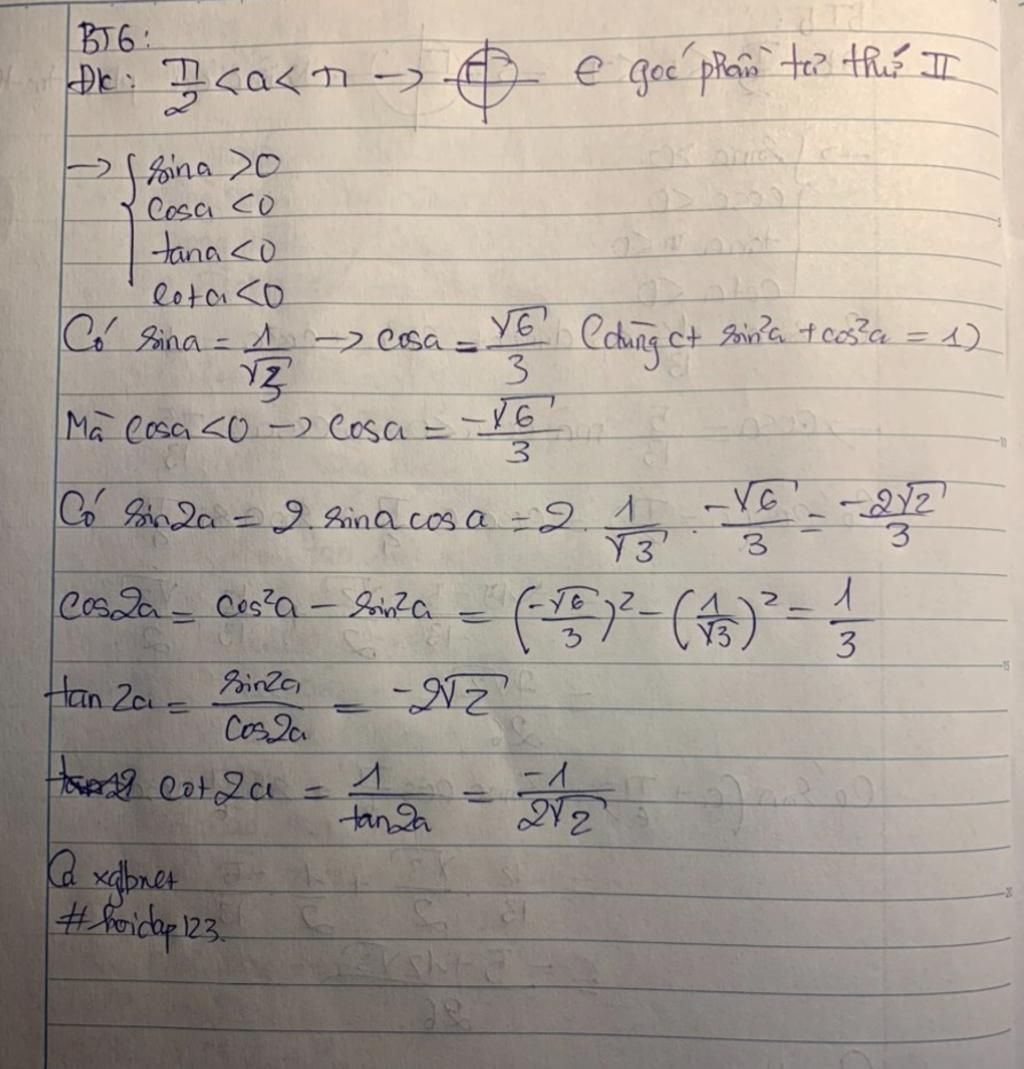 BT6:
Đk: π/2 < a < π → ∈ góc phần tư thứ II
→ { sina > 0
cosa < 0
tana < 0
cota < 0
Có sina = 1/√3 → cosa = √6/3 (dùng ct sin²a + cos²a = 1)
Mà cosa < 0 → cosa = -√6/3
Có sin2a = 2. sina cosa = 2 . 1/√3 . -√6/3 = -2√2/3
cos2a = cos²a - sin²a = (-√6/3)² - (1/√3)² = 1/3
tan2a = sin2a/cos2a = -2√2
cot2a = 1/tan2a = -1/2√2
@ xglbnet
#hoidap123.